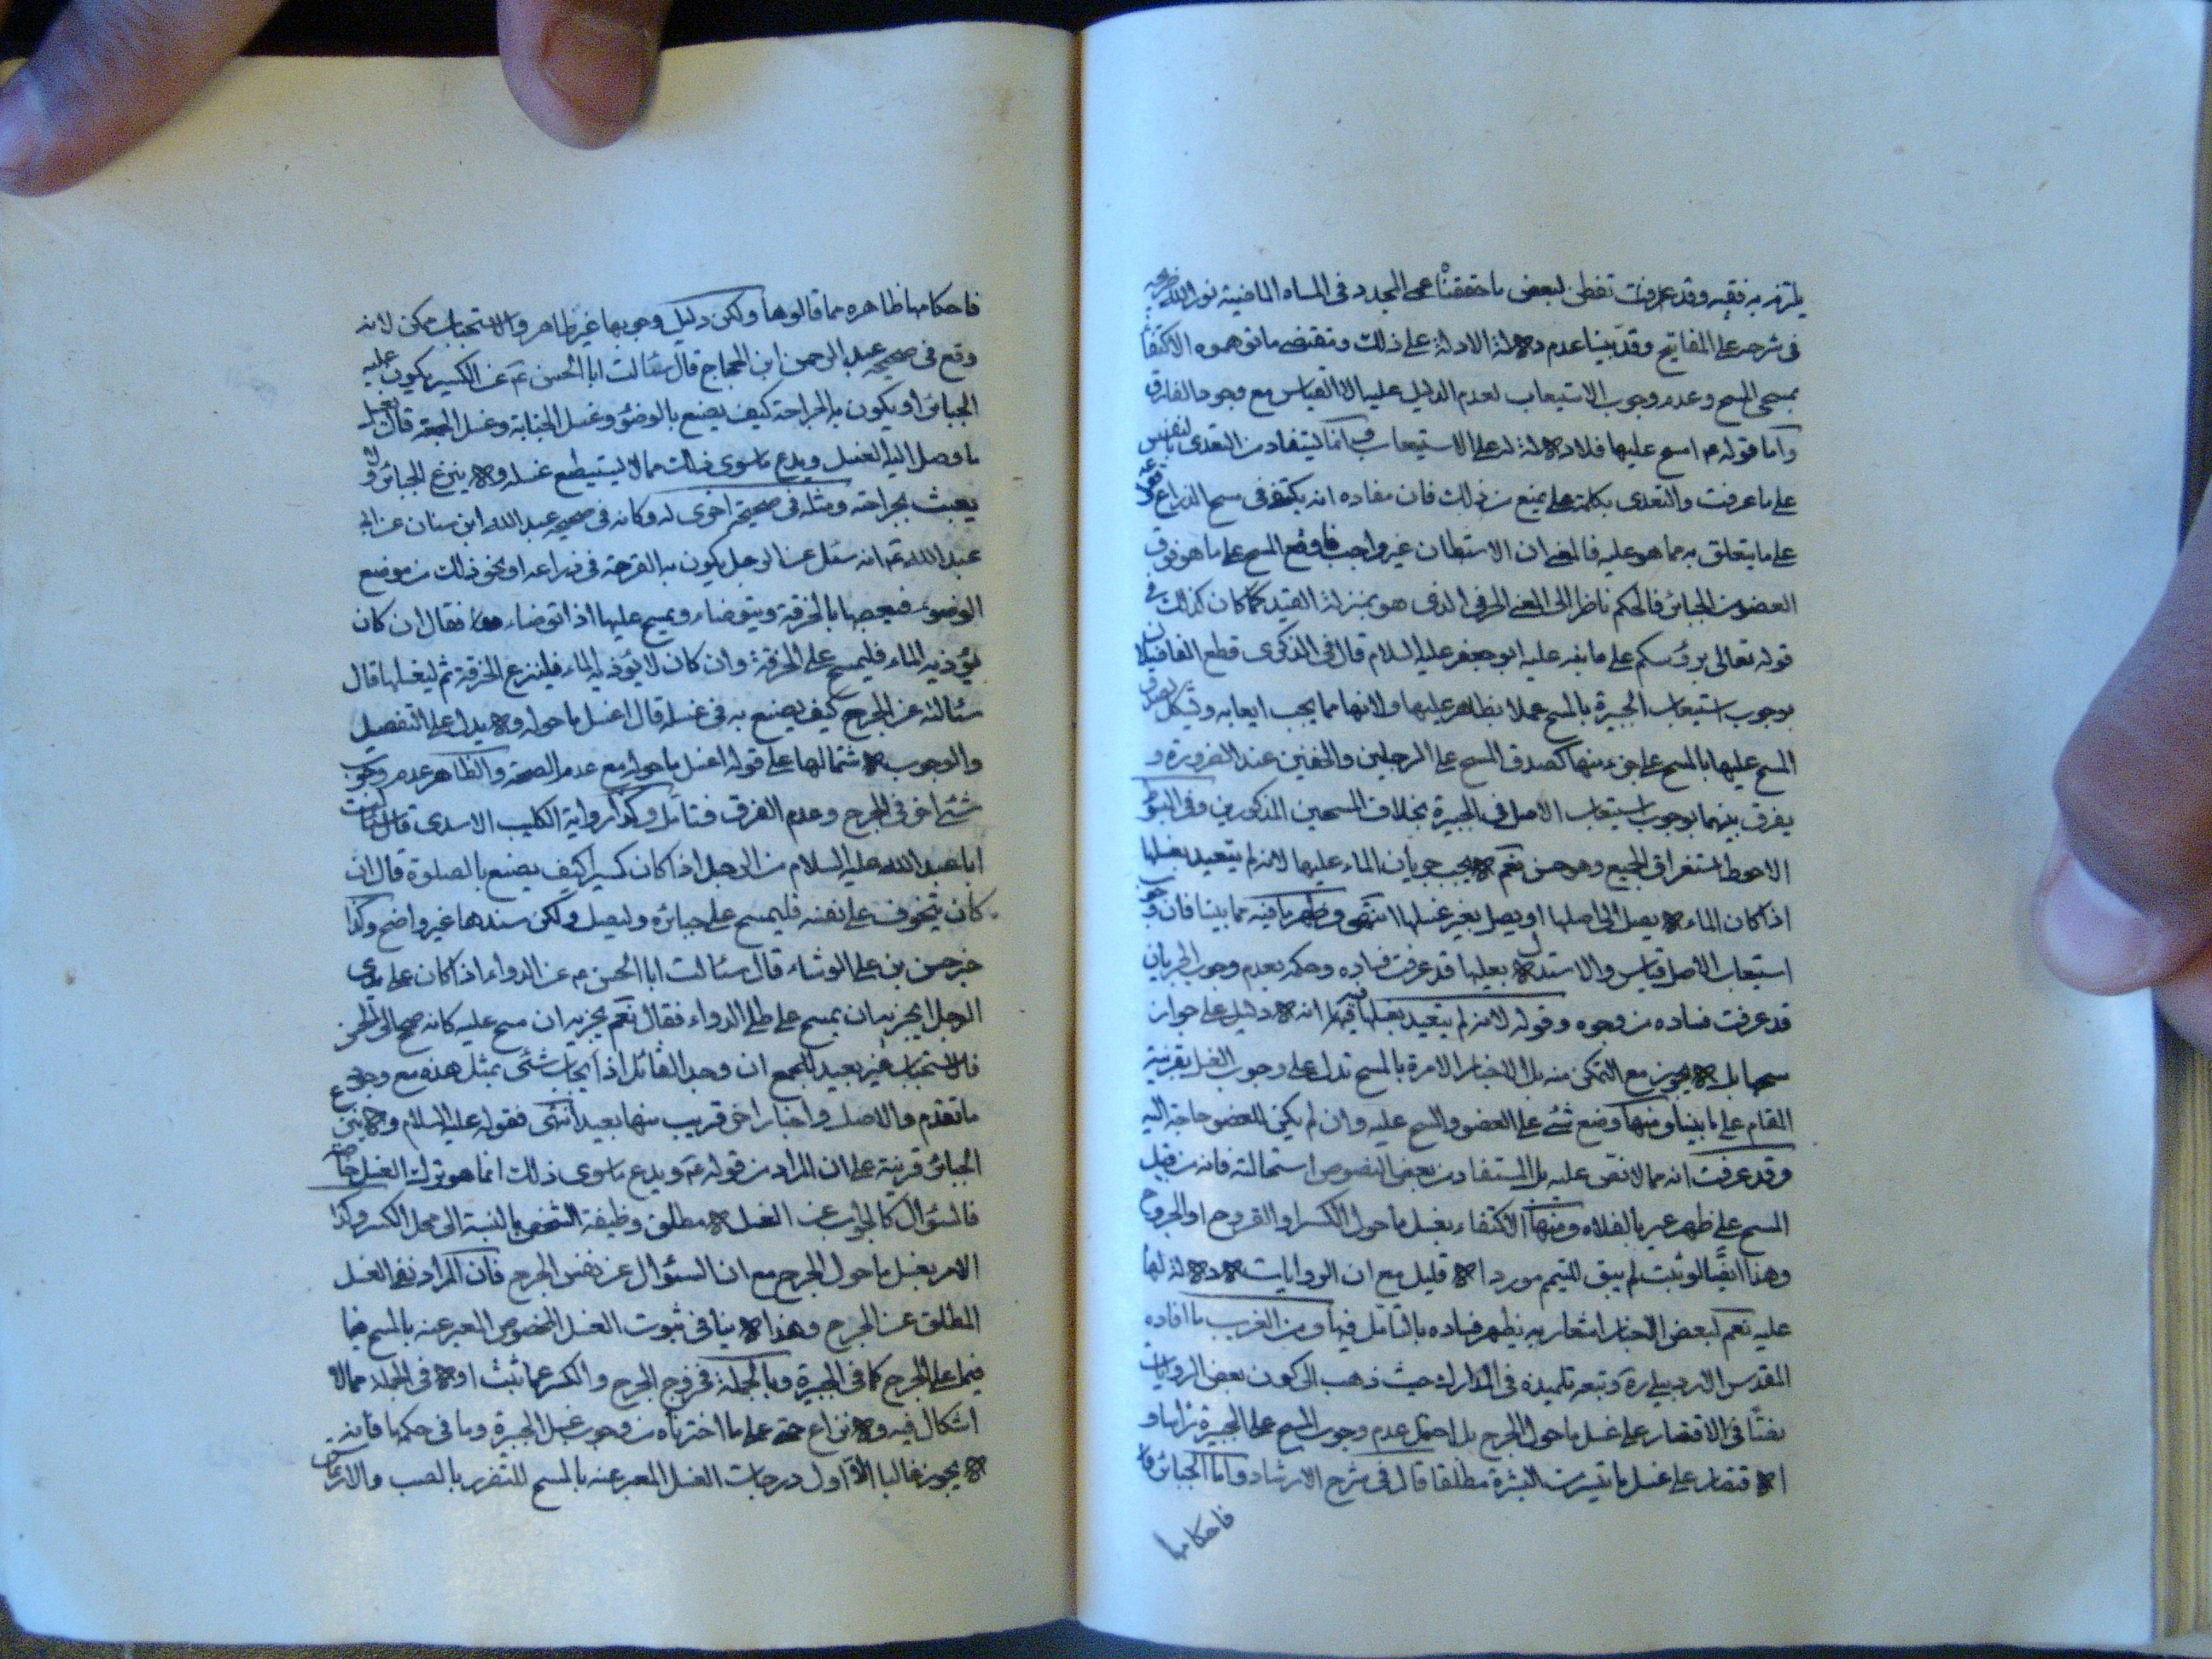 يلتزم به فقيه وقد عرفت تفطن لبعض ما حققناه محي المجدد في الماه الماضية نور الله ضريحه
في شرحه على المفاتيح وقد بينا عدم دلالة الادلة على ذلك ومقتضى ما توهموه الاكتفاء
بمسمى المسح وعدم وجوب الاستيعاب لعدم الدليل عليه الا القياس مع وجود الفارق
واما قوله ع امسح عليها فلا دلالة له على الاستيعاب وانما يستفاد من التعدى بالنفس
على ما عرفت والتعدى بكلمة على يمنع من ذلك فان مفاده انه يكتفى في مسح الذراع
على ما يتعلق به مما هو عليه فالمعنى ان الاستبطان غير واجب فاوقع المسح على ما هو فوق
العضو من الجبائر فالحكم ناظر الى المعنى الحرفى الذى هو بمنزلة القيد كما كان كذلك في
قوله تعالى برؤسكم على ما نبه عليه ابو جعفر عليه السلام قال في الذكرى قطع الفاضلان
بوجوب استيعاب الجبيرة بالمسح عملا بظاهر عليها ولانها مما يجب ايعابه ويشكل بصدق
المسح عليها بالمسح على جزء منها كصدق المسح على الرجلين والخفين عند الضرورة و
يفرق بينهما بوجوب استيعاب الاصل في الجبيرة بخلاف المسحين المذكورين وفي المبسوط
الاحوط استغراق الجميع وهو حسن نعم لا يجب جريان الماء عليها لانه لم يتعبد بغسلها
اذا كان الماء لا يصل الى اصلها او يصل بغير غسلها انتهى وظهر ما فيه مما بينا فان وجوب
استيعاب الاصل قياس والاستدلال بعليها قد عرفت فساده وحكمه بعدم وجوب الجريان
قد عرفت فساده من وجوه وقوله لانه لم يتعبد بغسلها فيه انه لا دليل على جواز
مسحها بل لا يجوز مع التمكن منه بل الاخبار الامرة بالمسح تدل على وجوب الغسل بقرينة
المقام على ما بينا ومنها وضع شئ على العضو والمسح عليه وان لم يكن للعضو حاجة اليه
وقد عرفت انه مما لا نص عليه بل المستفاد من بعض النصوص استحالته فانه من قبيل
المسح على ظهر عير بالفلاه ومنها الاكتفاء بغسل ما حول الكسر او القروح او الجروح
وهذا ايضا لو ثبت لم يبق للتيمم مورد الا قليل مع ان الروايات لا دلالة لها
عليه نعم لبعض الاخبار اشعار به يظهر فساده بالتامل فيها ومن الغريب ما افاده
المقدس الاردبيلى ره وتبعه تلميذه في المدارك حيث ذهب الى كون بعض الروايات
نصا في الاقتصار على غسل ما حول الجرح بل احتمل عدم وجوب المسح على الجبيرة راسا و
الاقتصار على غسل ما تيسرت البشرة مطلقا قال في شرح الارشاد واما الجبائر
فاحكامها
فاحكامها ظاهره مما قالوها ولكن دليل وجوبها غير ظاهر والاستحباب ممكن لانه
وقع في صحيحه عبد الرحمن ابن الحجاج قال سئالت ابا الحسن ع عن الكسير يكون عليه
الجبائر او يكون به الجراحة كيف يصنع بالوضوء وغسل الجنابة وغسل الجمعه قال يغسل
ما وصل اليه الغسل ويدع ما سوى ذلك مما لا يستطيع غسله ولا ينزع الجبائر ولا
يعبث بجراحته ومثله في صحيحة اخرى له وكانه في صحيحه عبد الله ابن سنان عن ابى
عبد الله ع انه سئل عن الرجل يكون به القرحة في ذراعه او نحو ذلك من موضع
الوضوء فيعصبها بالخرقة ويتوضاء ويمسح عليها اذا توضاء فقال ان كان
يؤذيه الماء فليمسح على الخرقة وان كان لا يؤذيه الماء فلينزع الخرقة ثم ليغسلها قال
سئالته عن الجرح كيف يصنع به في غسله قال اغسل ما حوله ولا يدل على التفصيل
والوجوب لاشتمالها على قوله اغسل ما حوله مع عدم الصحة والظاهر عدم وجوب
شئ اخر في الجرح وعدم الفرق فتامل وكذا رواية الكليب الاسدى قال سئالت
ابا عبد الله عليه السلام من الرجل اذا كان كسيرا كيف يصنع بالصلوة قال ان
كان يتخوف على نفسه فليمسح على جبائره وليصل ولكن سندها غير واضح وكذا
خبر حسن بن على الوشاء قال سئالت ابا الحسن ع عن الدواء اذا كان على يدى
الرجل ايجزيه ان يمسح على طلى الدواء فقال نعم يجزيه ان مسح عليه كانه
فالاستحباب غير بعيد للجمع ان وجد القائل اذ ايجاب شئ بمثل هذه مع وجود
ما تقدم والاصل واخبار اخر قريب منها بعيد انتهى فقوله عليه السلام ولا ينزع
الجبائر قرينة على ان المراد من قوله ع ويدع ما سوى ذلك انما هو ترك الغسل خاصة
فالسئوال كالجواب عن الغسل لا مطلق وظيفة الشخص بالنسبة الى محل الكسر وكذا
الامر بغسل ما حول الجرح مع ان السئوال عن نفس الجرح فان المراد نفى الغسل
المطلق عن الجرح وهذا لا ينافى ثبوت الغسل المخصوص المعبر عنه بالمسح
على الجرح كما في الجبيرة وبالجملة فخروج الجرح والكسر عما ثبت اولا في الجملة مما لا
اشكال فيه ولا نزاع حتى على ما اخترناه من وجوب غسل الجبيرة وما في حكمها فانه
لا يجوز غالبا الا اول درجات الغسل المعبر عنه بالمسح للتضرر بالصب والارتماس